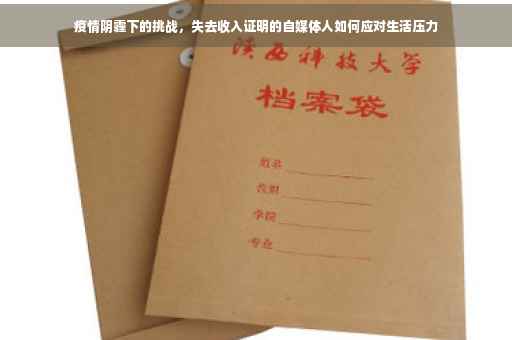 疫情阴霾下的挑战，失去收入证明的自媒体人如何应对生活压力
陕西科技大学
档案袋
姓名
性别
学院
专业